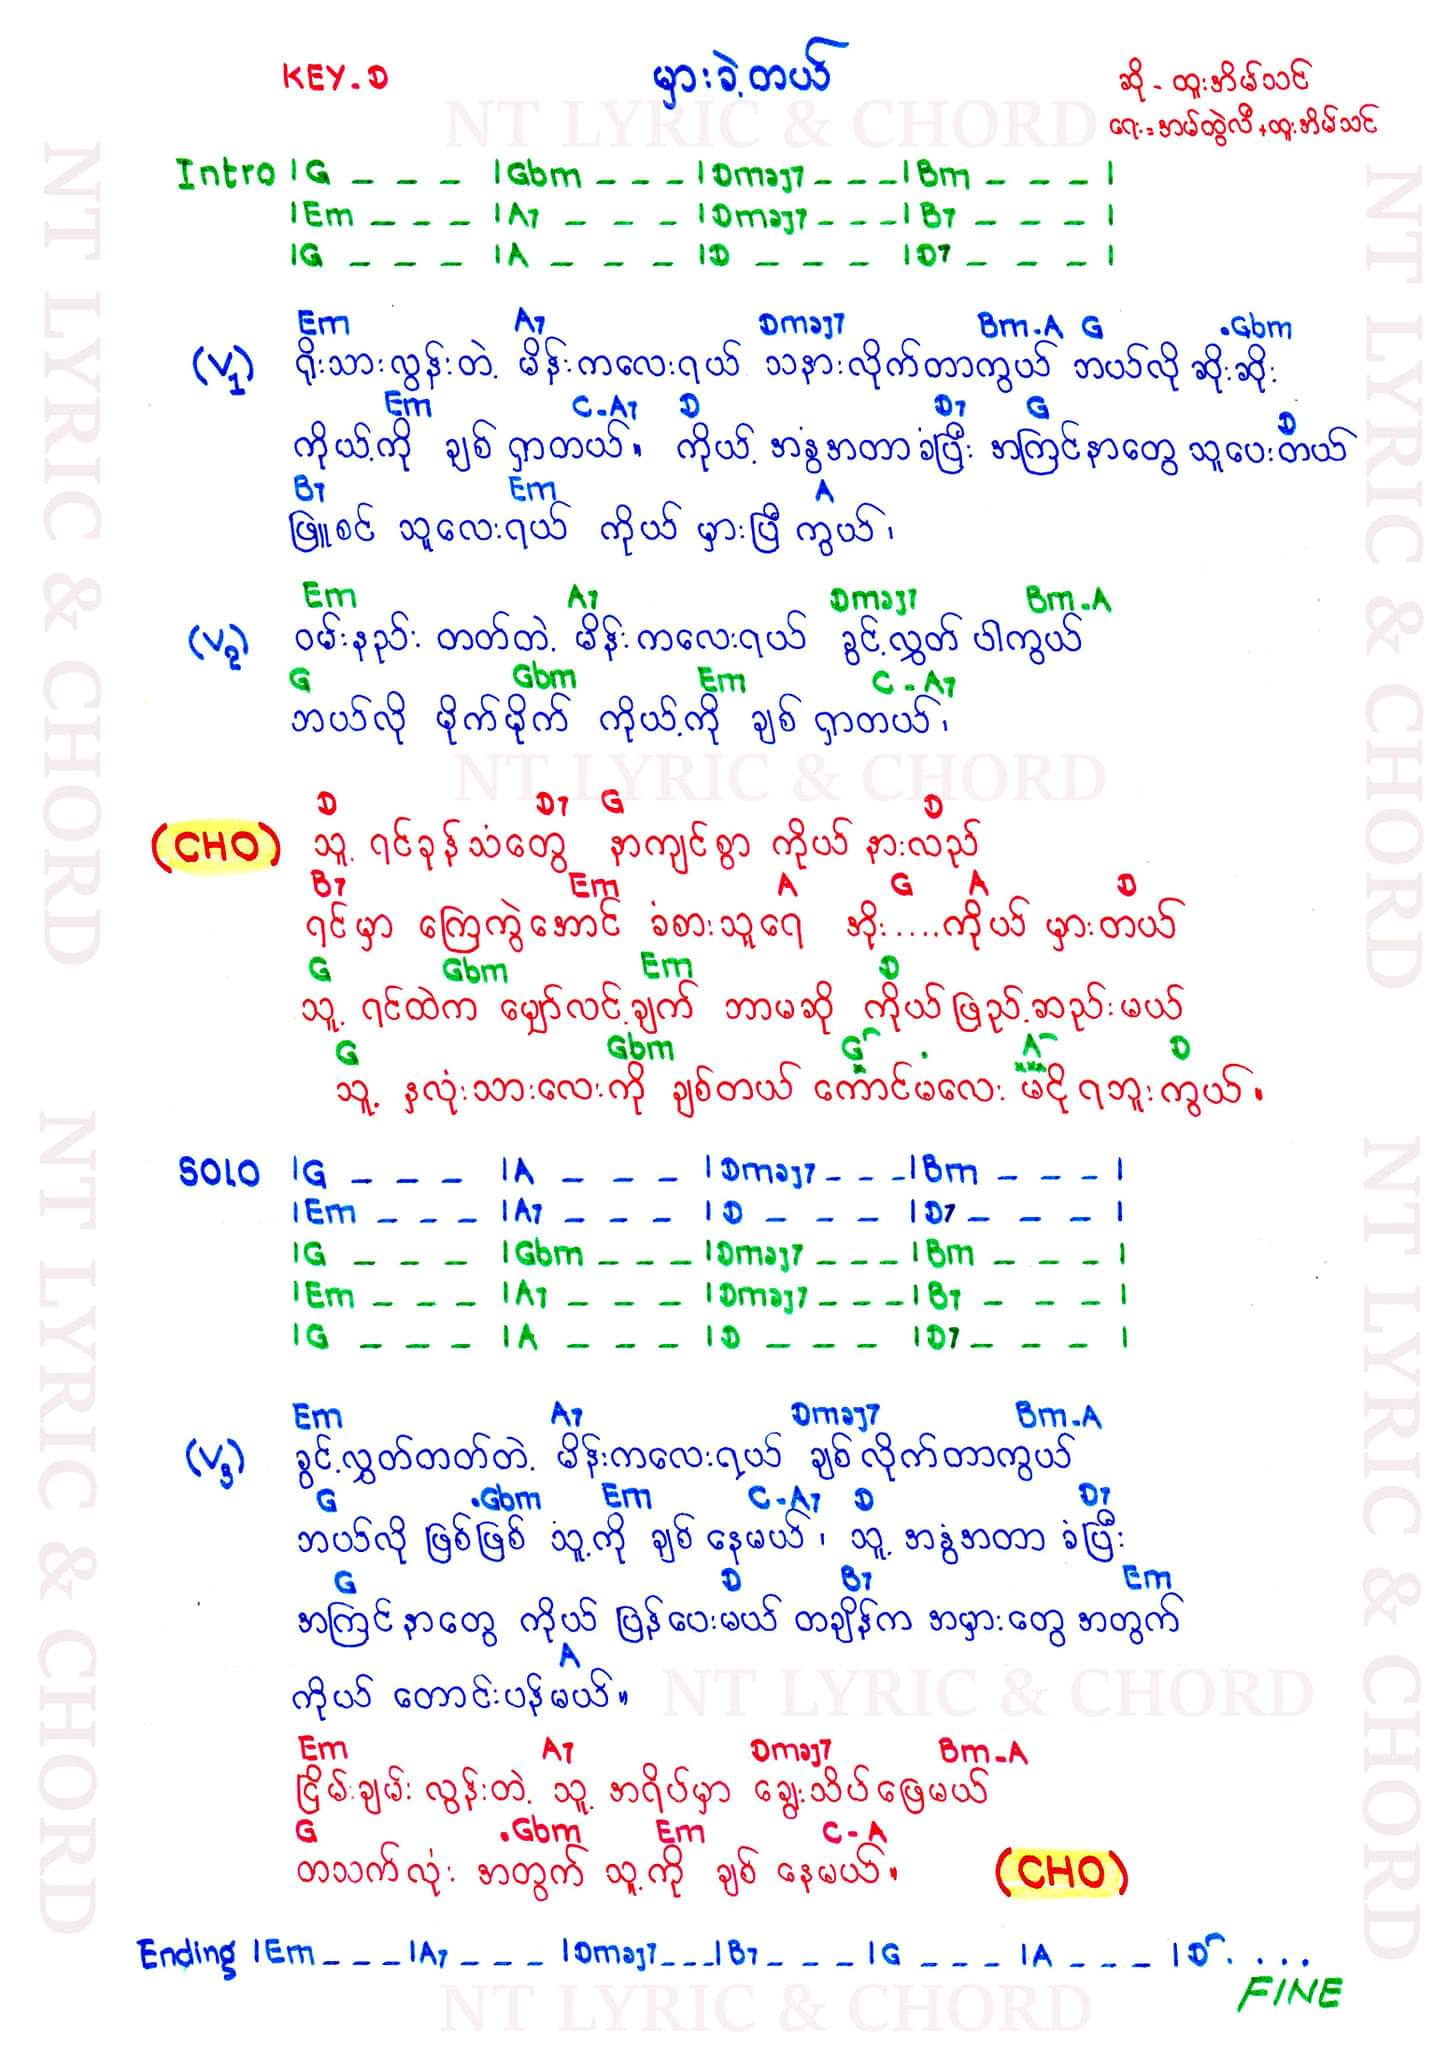 KEY.D မှားခဲ့တယ် ဆို - ထူးအိမ်သင်
ရေး = အမ်တွဲလီ + ထူးအိမ်သင်
NT LYRIC & CHORD
Intro |G _ _ _ |Gbm _ _ _ |Dmaj7 _ _ _ |Bm _ _ _ |
|Em _ _ _ |A7 _ _ _ |Dmaj7 _ _ _ |B7 _ _ _ |
|G _ _ _ |A _ _ _ |D _ _ _ |D7 _ _ _ |
Em A7 Dmaj7 Bm-A G .Gbm
(V1) ရိုးသားလွန်းတဲ့ မိန်းကလေးရယ် သနားလိုက်တာကွယ် ဘယ်လိုဆိုးဆိုး
Em C-A7 D D7 G D
ကိုယ့်ကို ချစ်ရှာတယ်။ ကိုယ့် အနွံအတာခံပြီး အကြင်နာတွေ သူပေးတယ်
B7 Em A
ဖြူစင် သူလေးရယ် ကိုယ် မှားပြီ ကွယ်၊
Em A7 Dmaj7 Bm-A
(V2) ဝမ်းနည်း တတ်တဲ့ မိန်းကလေးရယ် ခွင့်လွှတ် ပါကွယ်
G Gbm Em C-A7
ဘယ်လို မိုက်မိုက် ကိုယ့်ကို ချစ် ရှာတယ်၊
NT LYRIC & CHORD
D D7 G D
(CHO) သူ့ ရင်ခုန်သံတွေ နာကျင်စွာ ကိုယ် နားလည်
B7 Em A G A D
ရင်မှာ ကြေကွဲအောင် ခံစားသူရေ အိုး....ကိုယ် မှားတယ်
G Gbm Em D
သူ့ ရင်ထဲက မျှော်လင့်ချက် ဘာမဆို ကိုယ်ဖြည့်ဆည်းမယ်
G Gbm G A D
သူ့ နှလုံးသားလေးကို ချစ်တယ် ကောင်မလေး မငိုရဘူးကွယ်။
SOLO |G _ _ _ |A _ _ _ |Dmaj7 _ _ _ |Bm _ _ _ |
|Em _ _ _ |A7 _ _ _ |D _ _ _ |D7 _ _ _ |
|G _ _ _ |Gbm _ _ _ |Dmaj7 _ _ _ |Bm _ _ _ |
|Em _ _ _ |A7 _ _ _ |Dmaj7 _ _ _ |B7 _ _ _ |
|G _ _ _ |A _ _ _ |D _ _ _ |D7 _ _ _ |
Em A7 Dmaj7 Bm-A
(V3) ခွင့်လွှတ်တတ်တဲ့ မိန်းကလေးရယ် ချစ်လိုက်တာကွယ်
G .Gbm Em C-A7 D D7
ဘယ်လို ဖြစ်ဖြစ် သူ့ကို ချစ် နေမယ်၊ သူ့ အနွံအတာ ခံပြီး
G D B7 Em
အကြင်နာတွေ ကိုယ် ပြန်ပေးမယ် တချိန်က အမှားတွေ အတွက်
A
ကိုယ် တောင်းပန်မယ်။
NT LYRIC & CHORD
Em A7 Dmaj7 Bm-A
ငြိမ်းချမ်း လွန်းတဲ့ သူ့ အရိပ်မှာ ချွေးသိပ်ဖြေမယ်
G .Gbm Em C-A
တသက်လုံး အတွက် သူ့ကို ချစ် နေမယ်။ (CHO)
Ending |Em _ _ _ |A7 _ _ _ |Dmaj7 _ _ _ |B7 _ _ _ |G _ _ _ |A _ _ _ |D . . . .
FINE
NT LYRIC & CHORD
NT LYRIC & CHORD
NT LYRIC & CHORD
NT LYRIC & CHORD
NT LYRIC & CHORD